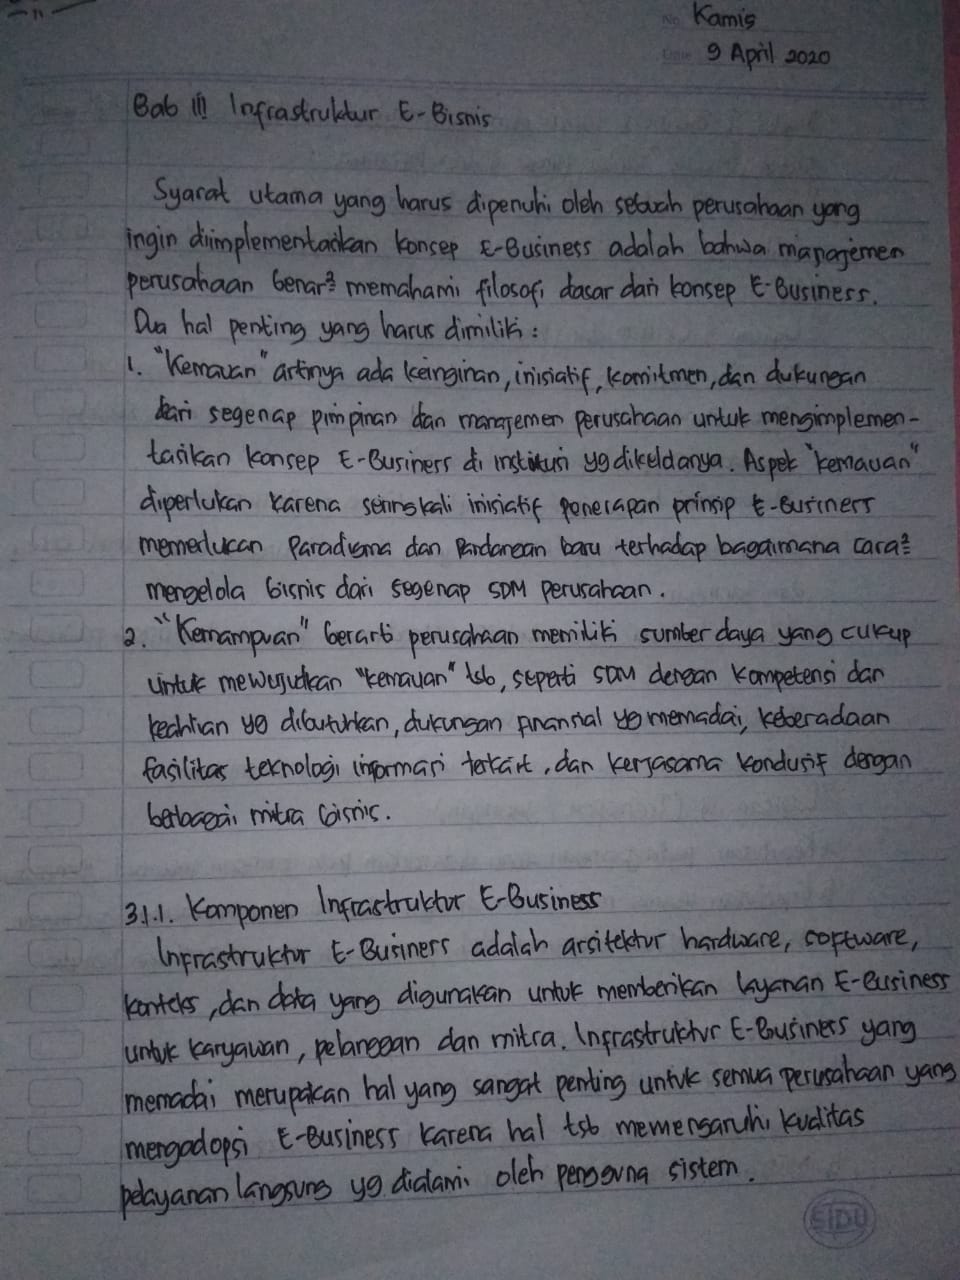 No. Kamis
Date 9 April 2020
Bab III Infrastruktur E-Bisnis
Syarat utama yang harus dipenuhi oleh sebuah perusahaan yang
ingin diimplementasikan konsep E-Business adalah bahwa manajemen
perusahaan benar² memahami filosofi dasar dari konsep E-Business.
Dua hal penting yang harus dimiliki :
1. "Kemauan" artinya ada keinginan, inisiatif, komitmen, dan dukungan
dari segenap pimpinan dan manajemen perusahaan untuk mengimplemen-
tasikan konsep E-Business di institusi yg dikelolanya. Aspek "kemauan"
diperlukan karena seringkali inisiatif penerapan prinsip E-Business
memerlukan Paradigma dan Pandangan baru terhadap bagaimana cara²
mengelola bisnis dari segenap SDM perusahaan.
2. "Kemampuan" berarti perusahaan memiliki sumber daya yang cukup
untuk mewujudkan "kemauan" tsb, seperti SDM dengan kompetensi dan
keahlian yg dibutuhkan, dukungan finansial yg memadai, keberadaan
fasilitas teknologi informasi terkait, dan kerjasama kondusif dengan
berbagai mitra bisnis.
3.1.1. Komponen Infrastruktur E-Business
Infrastruktur E-Business adalah arsitektur hardware, software,
konteks, dan data yang digunakan untuk memberikan layanan E-Business
untuk karyawan, pelanggan dan mitra. Infrastruktur E-Business yang
memadai merupakan hal yang sangat penting untuk semua perusahaan yang
mengadopsi E-Business karena hal tsb memengaruhi kualitas
pelayanan langsung yg dialami oleh pengguna sistem.
SIDU